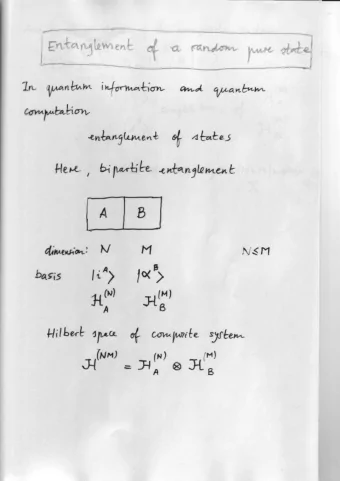 Entanglement of a random pure state
In quantum information and quantum
computation
entanglement of states
Here, bipartite entanglement
A B
dimension: N M N≤M
basis |i^A⟩ |α^B⟩
H_A^(N) H_B^(M)
Hilbert space of composite system
H^(NM) = H_A^(N) ⊗ H_B^(M)